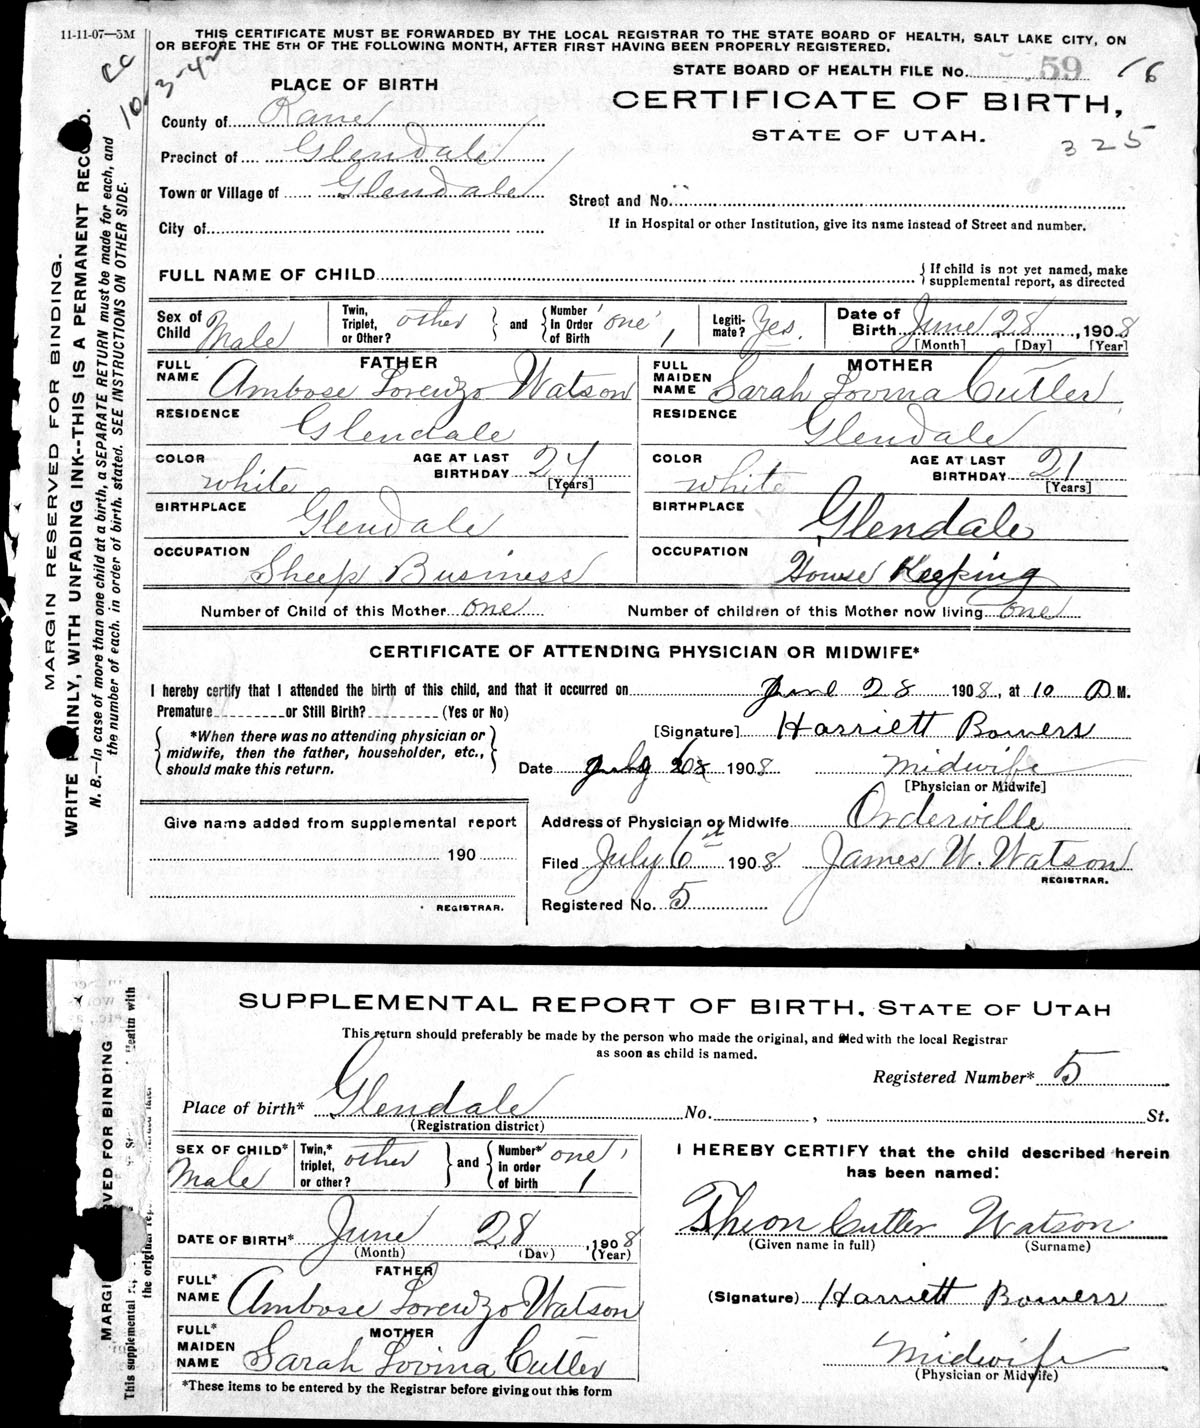 11-11-07—5M
THIS CERTIFICATE MUST BE FORWARDED BY THE LOCAL REGISTRAR TO THE STATE BOARD OF HEALTH, SALT LAKE CITY, ON
OR BEFORE THE 5TH OF THE FOLLOWING MONTH, AFTER FIRST HAVING BEEN PROPERLY REGISTERED.
CC
10-3-42
STATE BOARD OF HEALTH FILE No. 59 16
PLACE OF BIRTH
CERTIFICATE OF BIRTH,
STATE OF UTAH.
325
County of Kane
Precinct of Glendale
Town or Village of Glendale
Street and No.
City of
If in Hospital or other Institution, give its name instead of Street and number.
FULL NAME OF CHILD
{If child is not yet named, make
supplemental report, as directed
Sex of Child Male
Twin, Triplet, or Other? other
and
Number in Order of Birth 'one' 1
Legiti-mate? Yes.
Date of Birth June 28, 1908
[Month] [Day] [Year]
FATHER
FULL NAME Ambose Lorenzo Watson
MOTHER
FULL MAIDEN NAME Sarah Lovina Cutler
RESIDENCE Glendale
RESIDENCE Glendale
COLOR white
AGE AT LAST BIRTHDAY 24 [Years]
COLOR white
AGE AT LAST BIRTHDAY 21 [Years]
BIRTHPLACE Glendale
BIRTHPLACE Glendale
OCCUPATION Sheep Business
OCCUPATION House Keeping
Number of Child of this Mother one
Number of children of this Mother now living one
CERTIFICATE OF ATTENDING PHYSICIAN OR MIDWIFE*
I hereby certify that I attended the birth of this child, and that it occurred on June 28 1908, at 10 M.
Premature or Still Birth? (Yes or No)
[Signature] Harriett Bowers
*When there was no attending physician or
midwife, then the father, householder, etc.,
should make this return.
Date July 1908
Midwife
[Physician or Midwife]
Give name added from supplemental report
190
REGISTRAR.
Address of Physician or Midwife Orderville
Filed July 6th 1908 James W. Watson
REGISTRAR.
Registered No. 5
MARGIN RESERVED FOR BINDING.
WRITE PLAINLY, WITH UNFADING INK--THIS IS A PERMANENT RECORD.
N. B.—In case of more than one child at a birth, a SEPARATE RETURN must be made for each, and
the number of each. in order of birth. stated. SEE INSTRUCTIONS ON OTHER SIDE.
SUPPLEMENTAL REPORT OF BIRTH, STATE OF UTAH
This return should preferably be made by the person who made the original, and filed with the local Registrar
as soon as child is named.
Registered Number* 5
Place of birth* Glendale No. , St.
(Registration district)
SEX OF CHILD* Male
Twin,* triplet, or other? other
and
Number* in order of birth one, 1
I HEREBY CERTIFY that the child described herein
has been named:
Theon Cutler Watson
(Given name in full) (Surname)
DATE OF BIRTH* June 28, 1908
(Month) (Day) (Year)
FATHER
FULL* NAME Ambose Lorenzo Watson
(Signature) Harriett Bowers
MOTHER
FULL* MAIDEN NAME Sarah Lovina Cutler
Midwife
(Physician or Midwife)
*These items to be entered by the Registrar before giving out this form
VED FOR BINDING
MARGI
This supplemental
the original
Health with